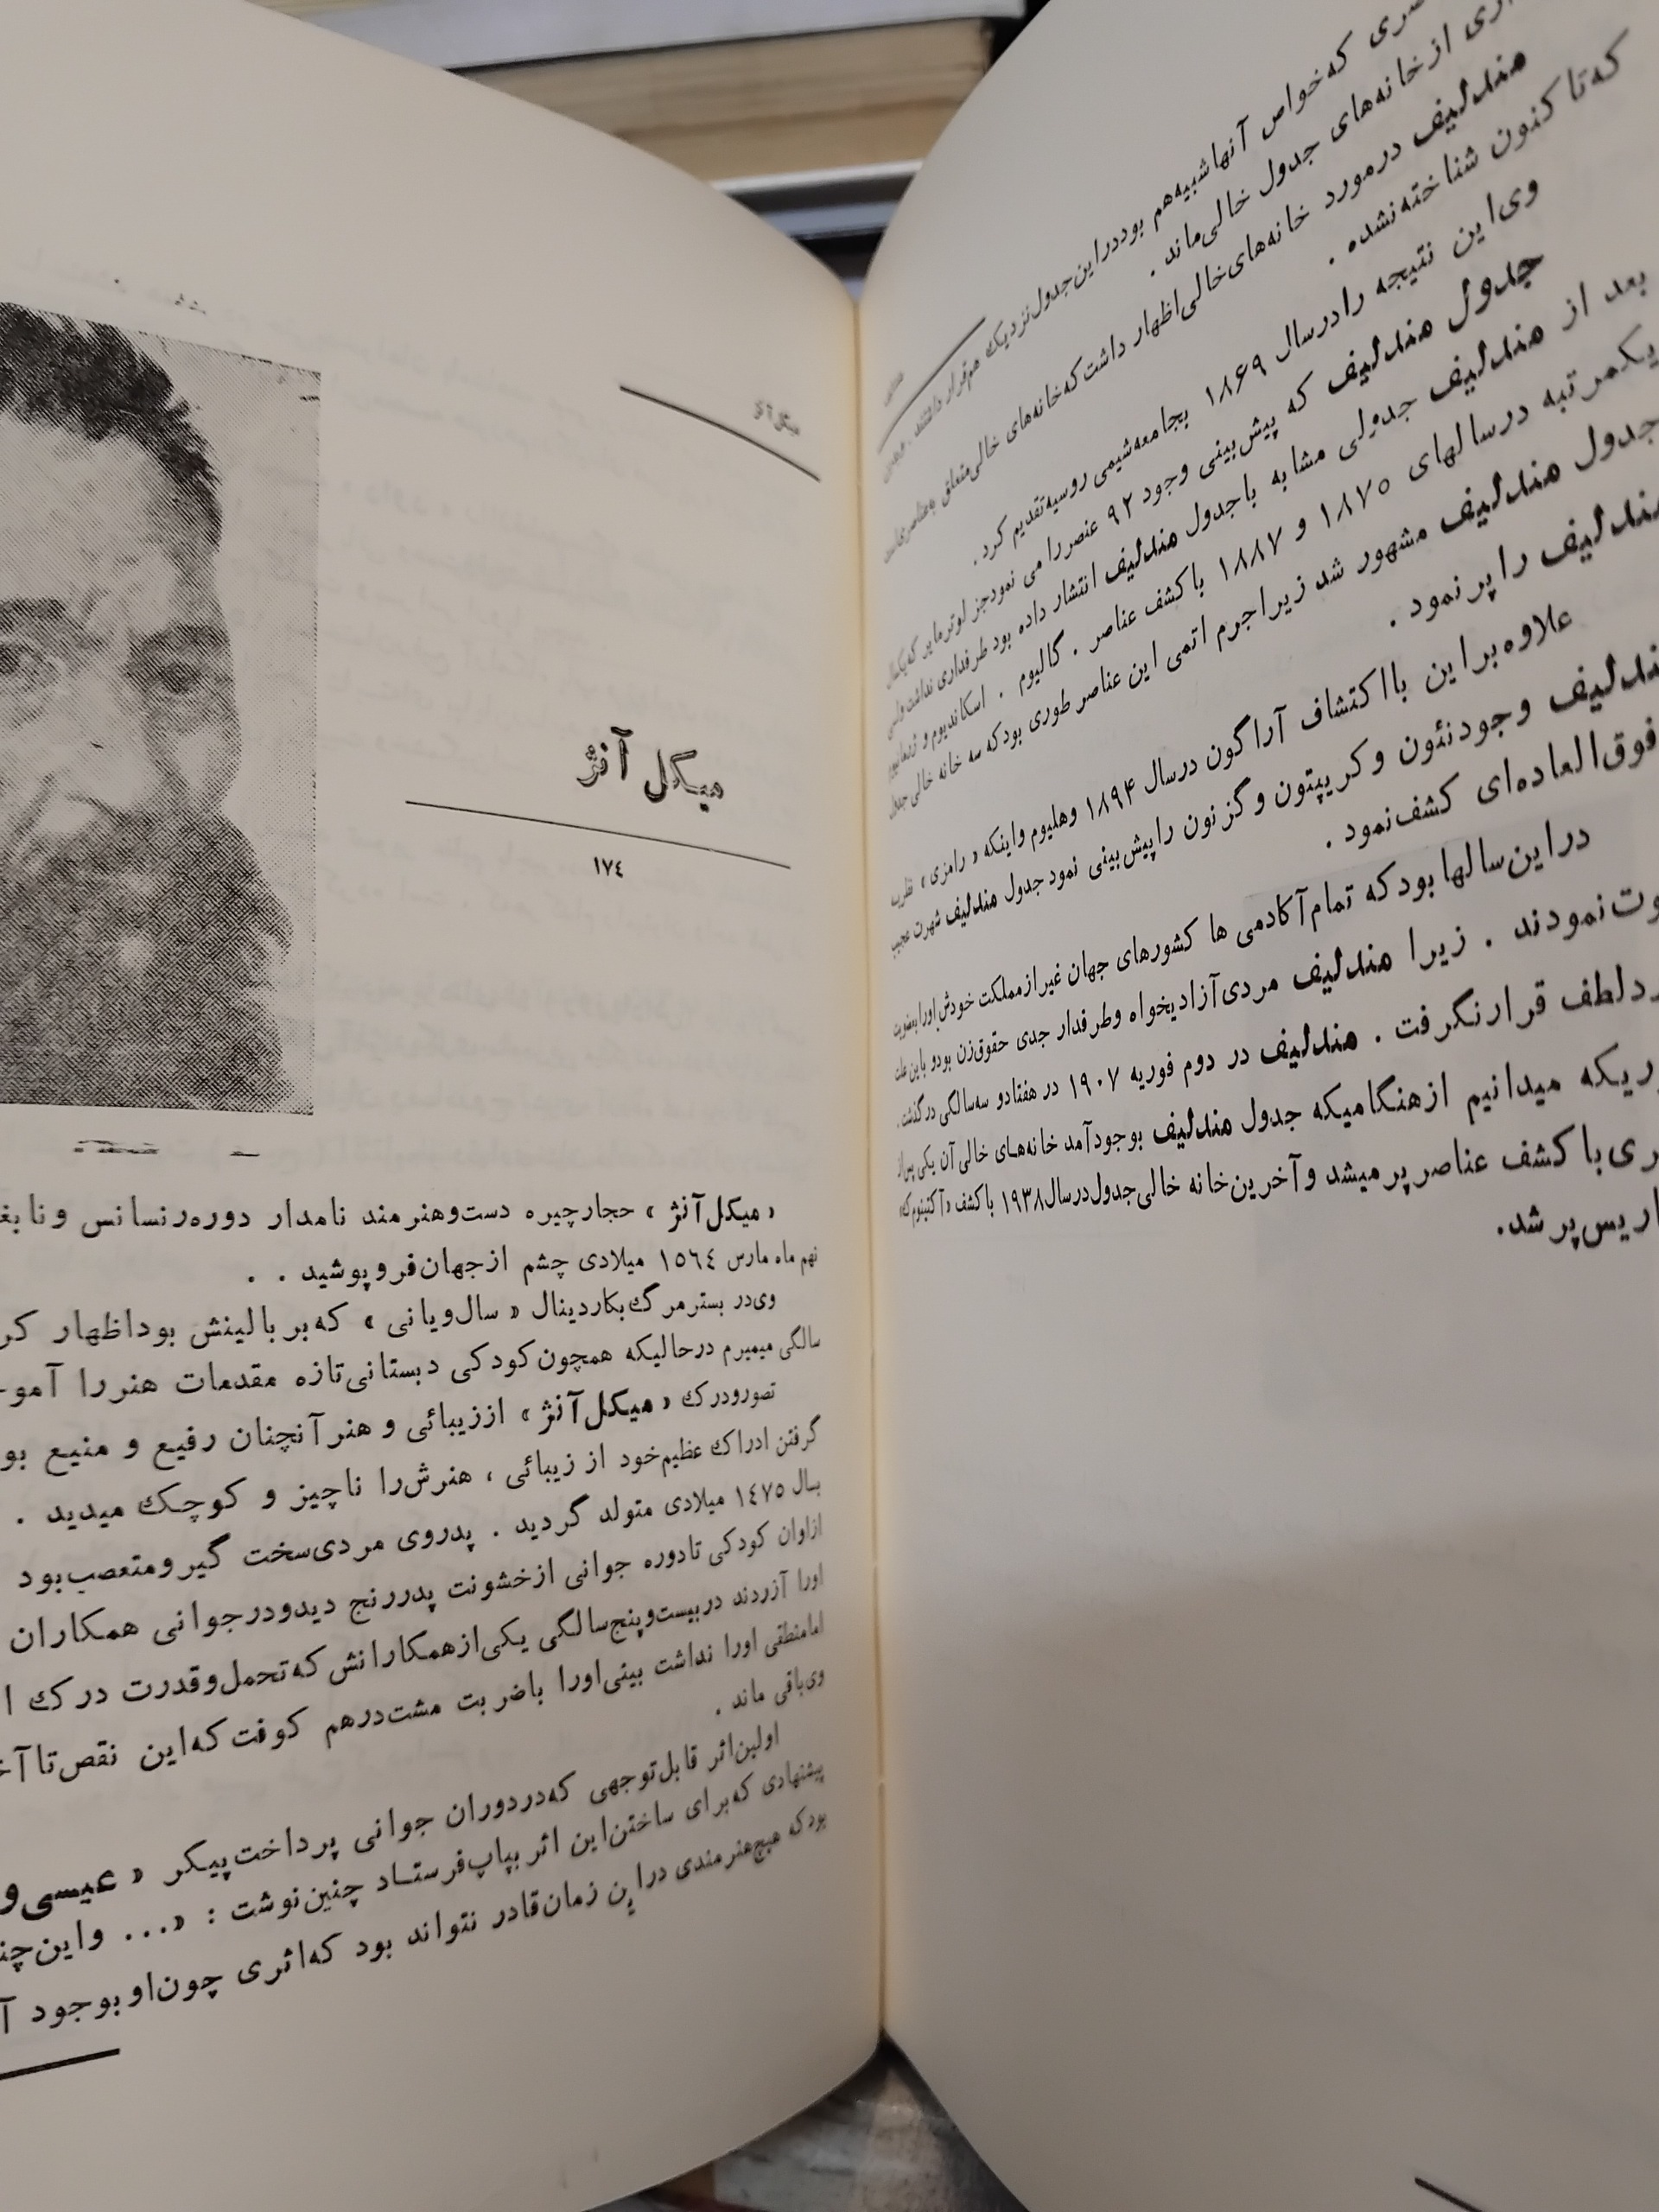 صری که خواص آنها شبیه هم بود در این جدول نزدیک هم قرار داشتند .
از خانه‌های جدول خالی ماند .
مندلیف در مورد خانه‌های خالی اظهار داشت که خانه‌های خالی متعلق به عناصری است
که تا کنون شناخته نشده .
وی این نتیجه را در سال ۱۸۶۹ بجامعه شیمی روسیه تقدیم کرد .
جدول مندلیف که پیش بینی وجود ۹۲ عنصر را می نمود جز لوترمایر که یکسال
بعد از مندلیف جدولی مشابه با جدول مندلیف انتشار داده بود طرفداری نداشت ولی
یکمرتبه در سالهای ۱۸۷۵ و ۱۸۸۷ با کشف عناصر . گالیوم . اسکاندیوم و
جدول مندلیف مشهور شد زیرا جرم اتمی این عناصر طوری بود که سه خانه خالی جدول
مندلیف را پر نمود .
علاوه بر این با اکتشاف آراگون در سال ۱۸۹۴ و هلیوم و اینکه « رامزی » نظریه
ندلیف وجود نئون و کریپتون و گزنون را پیش بینی نمود جدول مندلیف شهرت عجیب
فوق العاده‌ای کشف نمود .
در این سالها بود که تمام آکادمی ها کشورهای جهان غیر از مملکت خودش او را بعضویت
وت نمودند . زیرا مندلیف مردی آزادیخواه و طرفدار جدی حقوق زن بود و باین علت
رد لطف قرار نگرفت . مندلیف در دوم فوریه ۱۹۰۷ در هفتاد و سه سالگی در گذشت .
ریکه میدانیم از هنگامیکه جدول مندلیف بوجود آمد خانه‌های خالی آن یکی پس از
ری با کشف عناصر پر میشد و آخرین خانه خالی جدول در سال ۱۹۳۸ با کشف « آکتینوم که»
اریس پر شد.
میکل آنژ
میکل آنژ
١٧٤
« میکل آنژ » حجار چیره دست و هنرمند نامدار دوره رنسانس و نابغ
نهم ماه مارس ١٥٦٤ میلادی چشم از جهان فرو پوشید . .
وی در بستر مرگ بکاردینال « سال‌ویانی » که بر بالینش بود اظهار کر
سالگی میمیرم درحالیکه همچون کودکی دبستانی تازه مقدمات هنر را آمو
تصور و درک « میکل آنژ » از زیبائی و هنر آنچنان رفیع و منیع بو
گرفتن ادراک عظیم خود از زیبائی ، هنرش را ناچیز و کوچک میدید .
بال ١٤٧٥ میلادی متولد گردید . پدر وی مردی سخت گیر و متعصب بود
از اوان کودکی تا دوره جوانی از خشونت پدر رنج دید و در جوانی همکاران
اورا آزردند در بیست و پنج سالگی یکی از همکارانش که تحمل و قدرت درک ا
اما منطقی اورا نداشت بینی اورا با ضربت مشت درهم کوفت که این نقص تا آخ
وی باقی ماند .
اولین اثر قابل توجهی که در دوران جوانی پرداخت پیکر « عیسی و
پیشنهادی که برای ساختن این اثر بپاپ فرستاد چنین نوشت : «... و این چن
بود که هیچ هنرمندی در این زمان قادر نتواند بود که اثری چون او بوجود آ